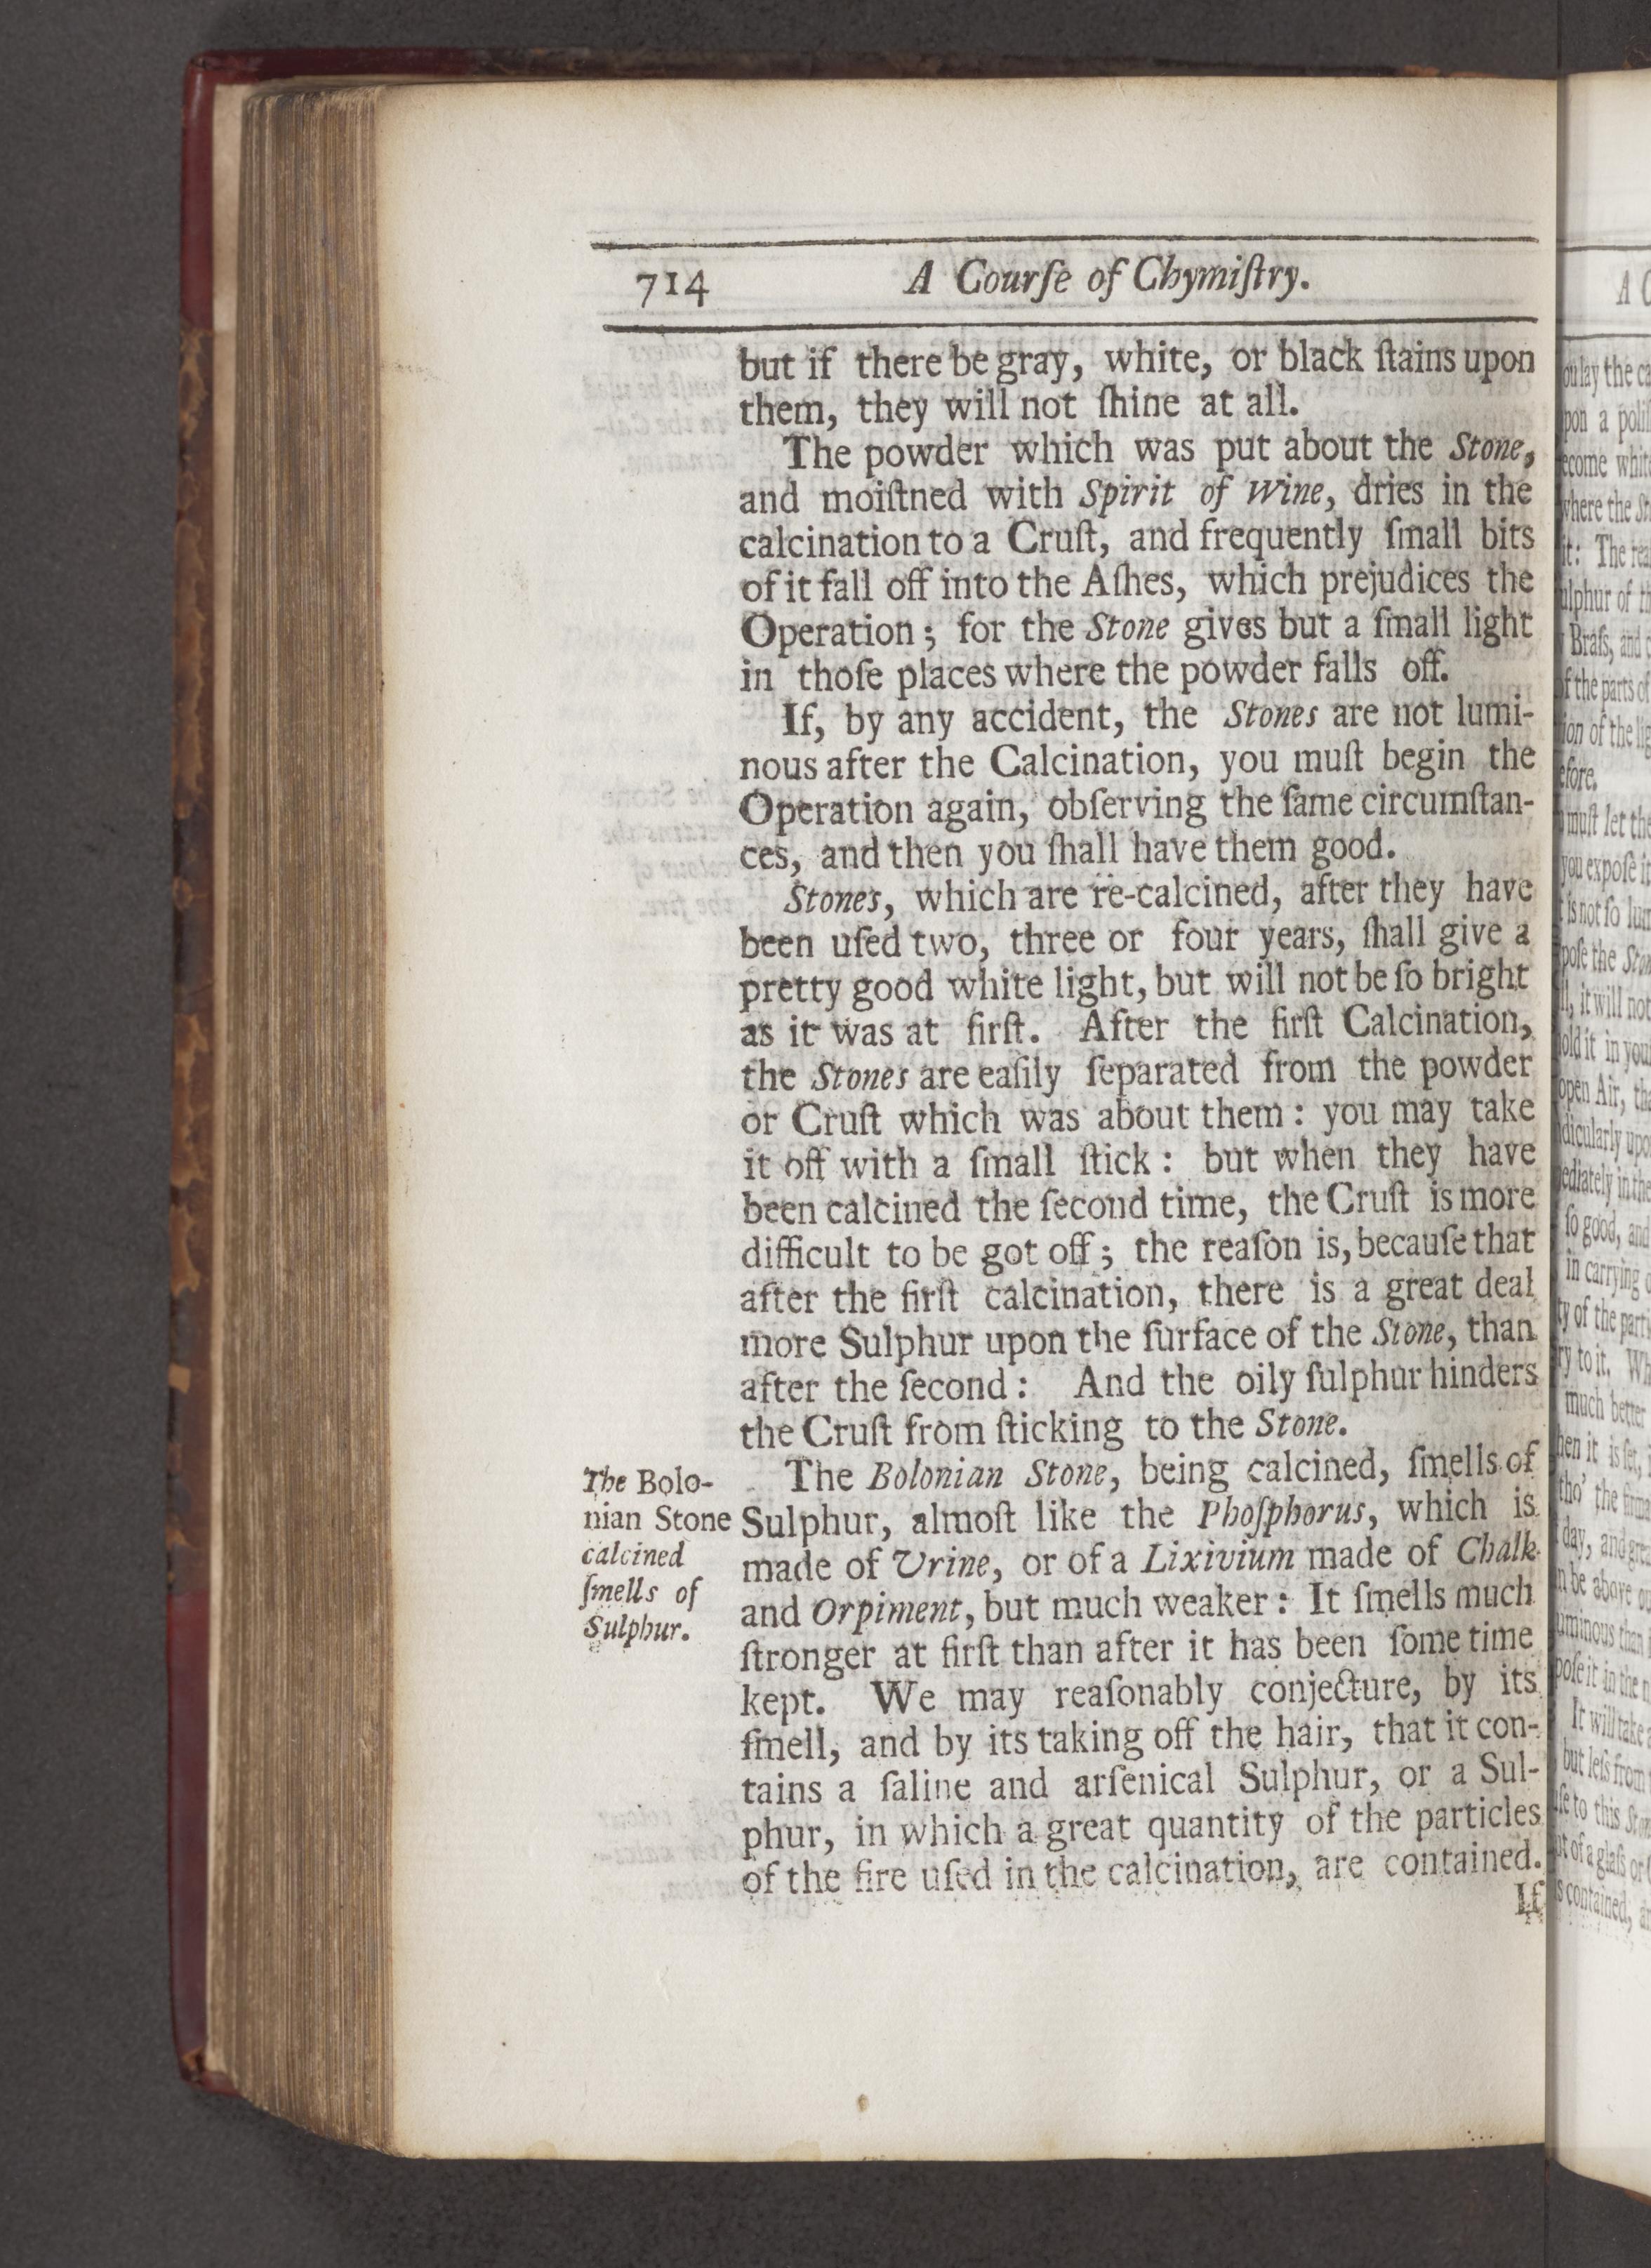 714 A Courſe of Chymiſtry.
but if there be gray, white, or black ſtains upon
them, they will not ſhine at all.
The powder which was put about the Stone,
and moiſtned with Spirit of Wine, dries in the
calcination to a Cruſt, and frequently ſmall bits
of it fall off into the Aſhes, which prejudices the
Operation; for the Stone gives but a ſmall light
in thoſe places where the powder falls off.
If, by any accident, the Stones are not lumi-
nous after the Calcination, you muſt begin the
Operation again, obſerving the ſame circumſtan-
ces, and then you ſhall have them good.
Stones, which are re-calcined, after they have
been uſed two, three or four years, ſhall give a
pretty good white light, but will not be ſo bright
as it was at firſt. After the firſt Calcination,
the Stones are eaſily ſeparated from the powder
or Cruſt which was about them: you may take
it off with a ſmall ſtick: but when they have
been calcined the ſecond time, the Cruſt is more
difficult to be got off; the reaſon is, becauſe that
after the firſt calcination, there is a great deal
more Sulphur upon the ſurface of the Stone, than
after the ſecond: And the oily ſulphur hinders
the Cruſt from ſticking to the Stone.
The Bolonian Stone, being calcined, ſmells of
Sulphur, almoſt like the Phoſphorus, which is
made of Urine, or of a Lixivium made of Chalk
and Orpiment, but much weaker: It ſmells much
ſtronger at firſt than after it has been ſome time
kept. We may reaſonably conjecture, by its
ſmell, and by its taking off the hair, that it con-
tains a ſaline and arſenical Sulphur, or a Sul-
phur, in which a great quantity of the particles
of the fire uſed in the calcination, are contained.
If
The Bolo-
nian Stone
calcined
ſmells of
Sulphur.
A
lay the
a
come
where the
it: The
of
Braſs, and
the parts of
of the
muſt let the
you expoſe it
is not ſo
the
it will not
it in
open Air,
in the
ſo good, and
in carrying
of the
to it.
much better
it is ſet,
tho' the
day, and
be above
than
it in the
It will take
but leſs from
to this
of a glaſs or
contained,